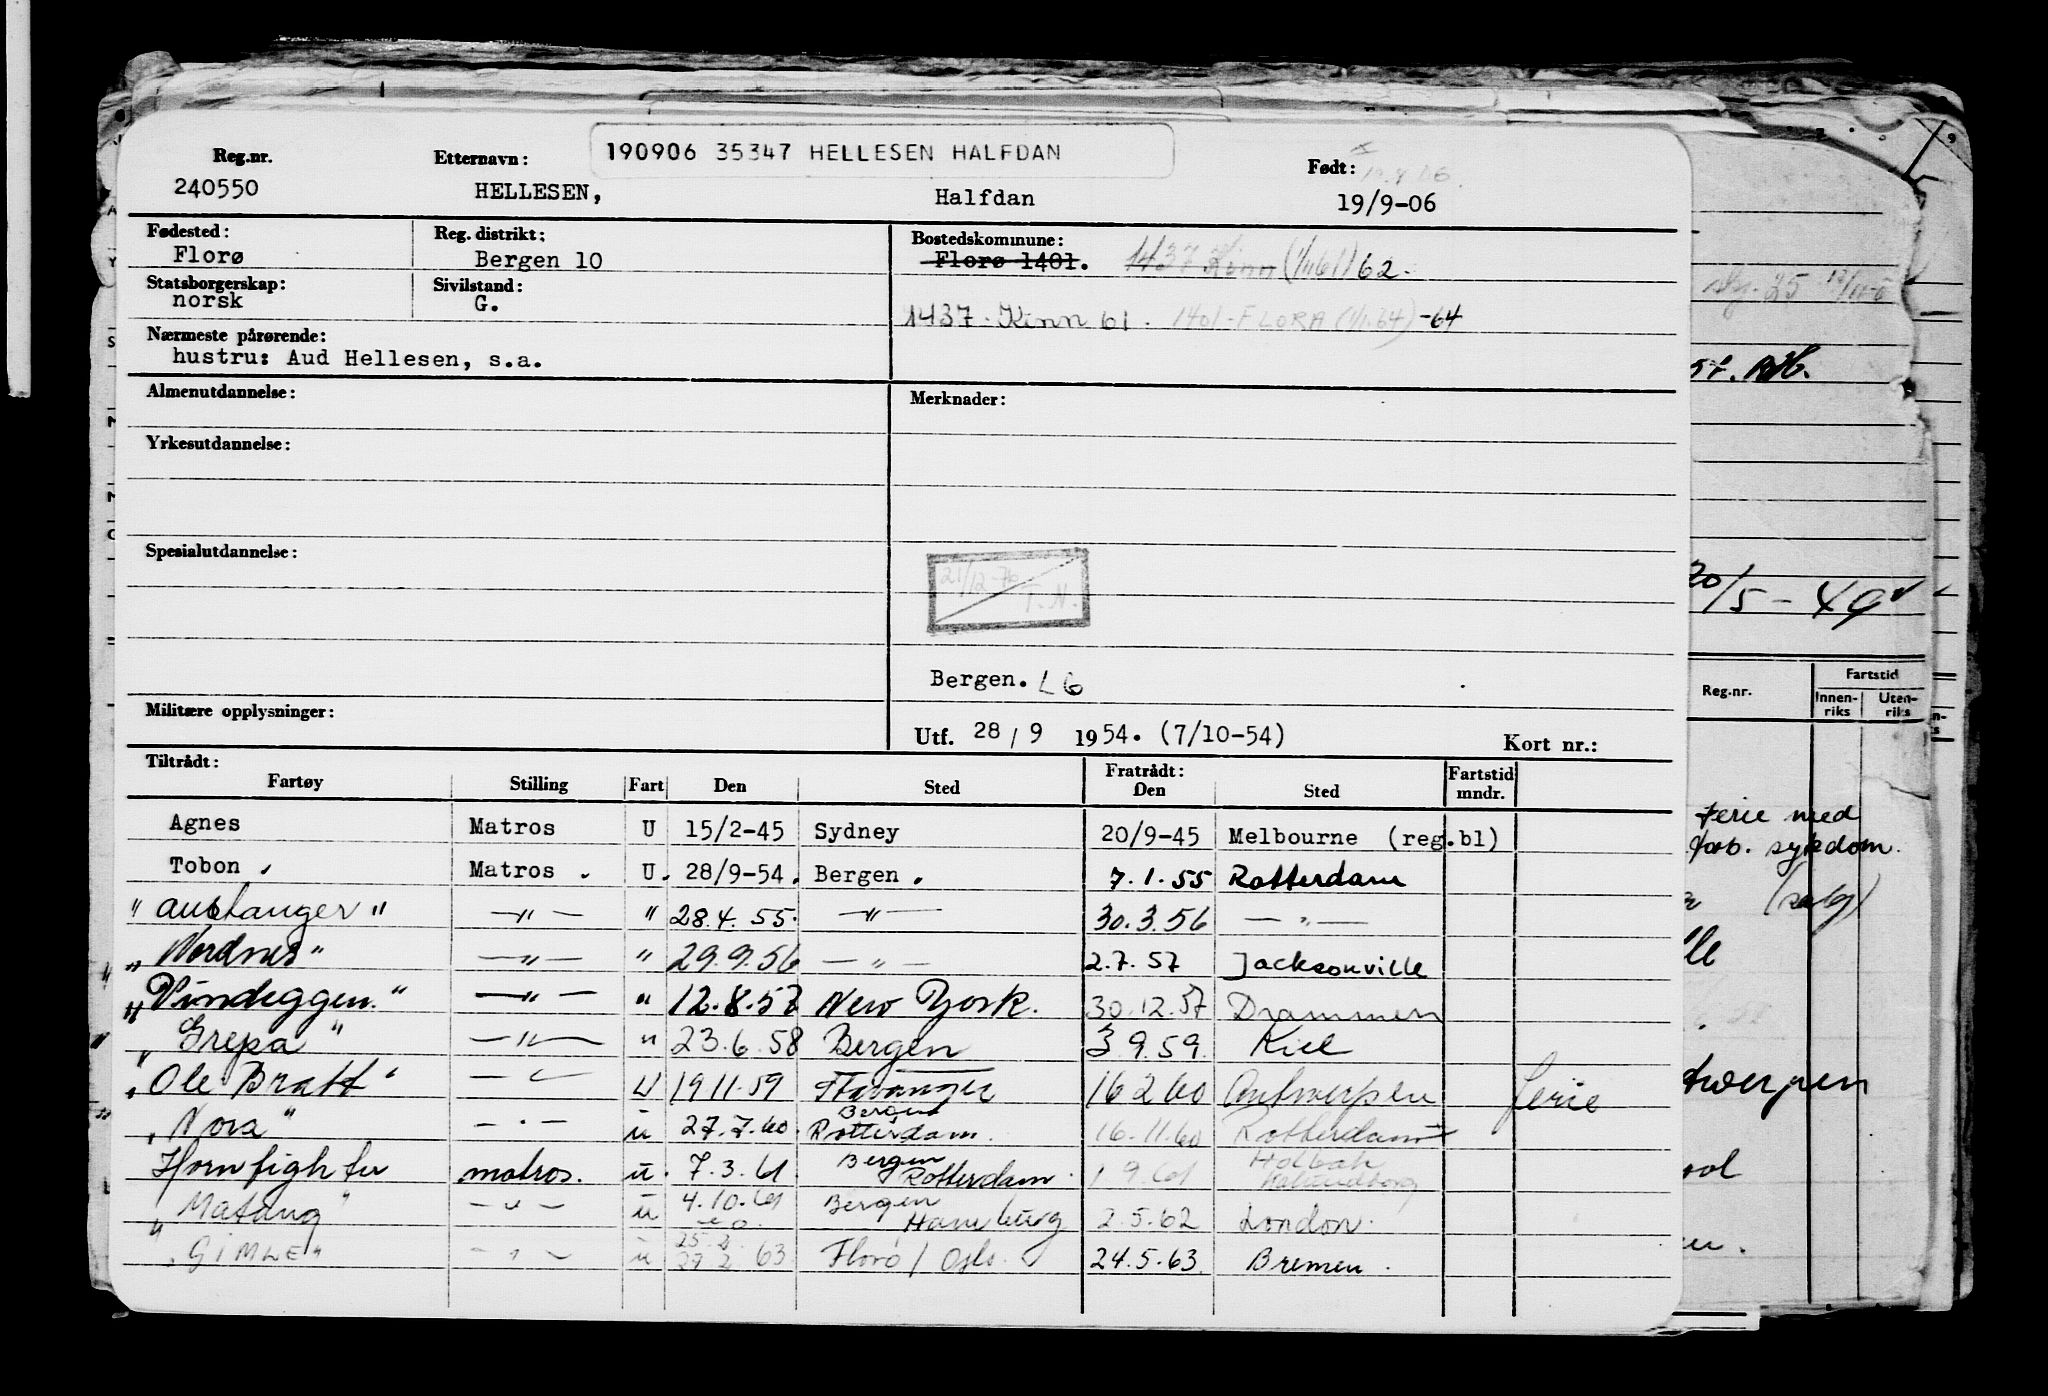 190906 35347 HELLESEN HALFDAN
Reg.nr. Etternavn: Født:
240550 HELLESEN, Halfdan 19/9-06
Fødested: Reg. distrikt: Bostedskommune:
Florø Bergen 10 Florø 1401. 1437 Kinn (1/1 61) 62.
Statsborgerskap: Sivilstand:
norsk G. 1437 - Kinn 61. 1401-FLORA (1/1.64) -64
Nærmeste pårørende:
hustru: Aud Hellesen, s.a.
Almenutdannelse: Merknader:
Yrkesutdannelse:
Spesialutdannelse:
21/12-76 T.N.
Bergen. L6
Militære opplysninger:
Utf. 28/9 1954. (7/10-54) Kort nr.:
Tiltrådt: Fratrådt:
Fartøy Stilling Fart Den Sted Den Sted Fartstid mndr.
Agnes Matros U 15/2-45 Sydney 20/9-45 Melbourne (reg.bl)
Tobon. Matros. U. 28/9-54. Bergen. 7.1.55 Rotterdam
"Austanger" —"— " 28.4.55. —"— 30.3.56 —"—
"Nordnes" —"— " 29.9.56 —"— 2.7.57 Jacksonville
"Vindeggen." —"— " 12.8.57 New York. 30.12.57 Drammen
"Grepa" —"— " 23.6.58 Bergen 3.9.59. Kiel
"Ole Bratt" —"— U 19 11.59 Stavanger 16 2 60 Antwerpen ferie
"Nora" —"— u 27.7.60. Bergen Rotterdam. 16.11.60 Rotterdam
Hornfighter matros. u. 7.3.61 Bergen Rotterdam. 1 9.61 Holbæk Kalundborg
"Matang" —"— u 4.10.61 Bergen Hamburg 2.5.62 London.
"GIMLE" —"— u 25.2. 27 2 63 Florø / Oslo. 24.5.63. Bremen.
57.
20/5-49
Reg.nr. Fartstid
Innen-riks Uten-riks
Ferie med
forb. sykdom.
(salg)